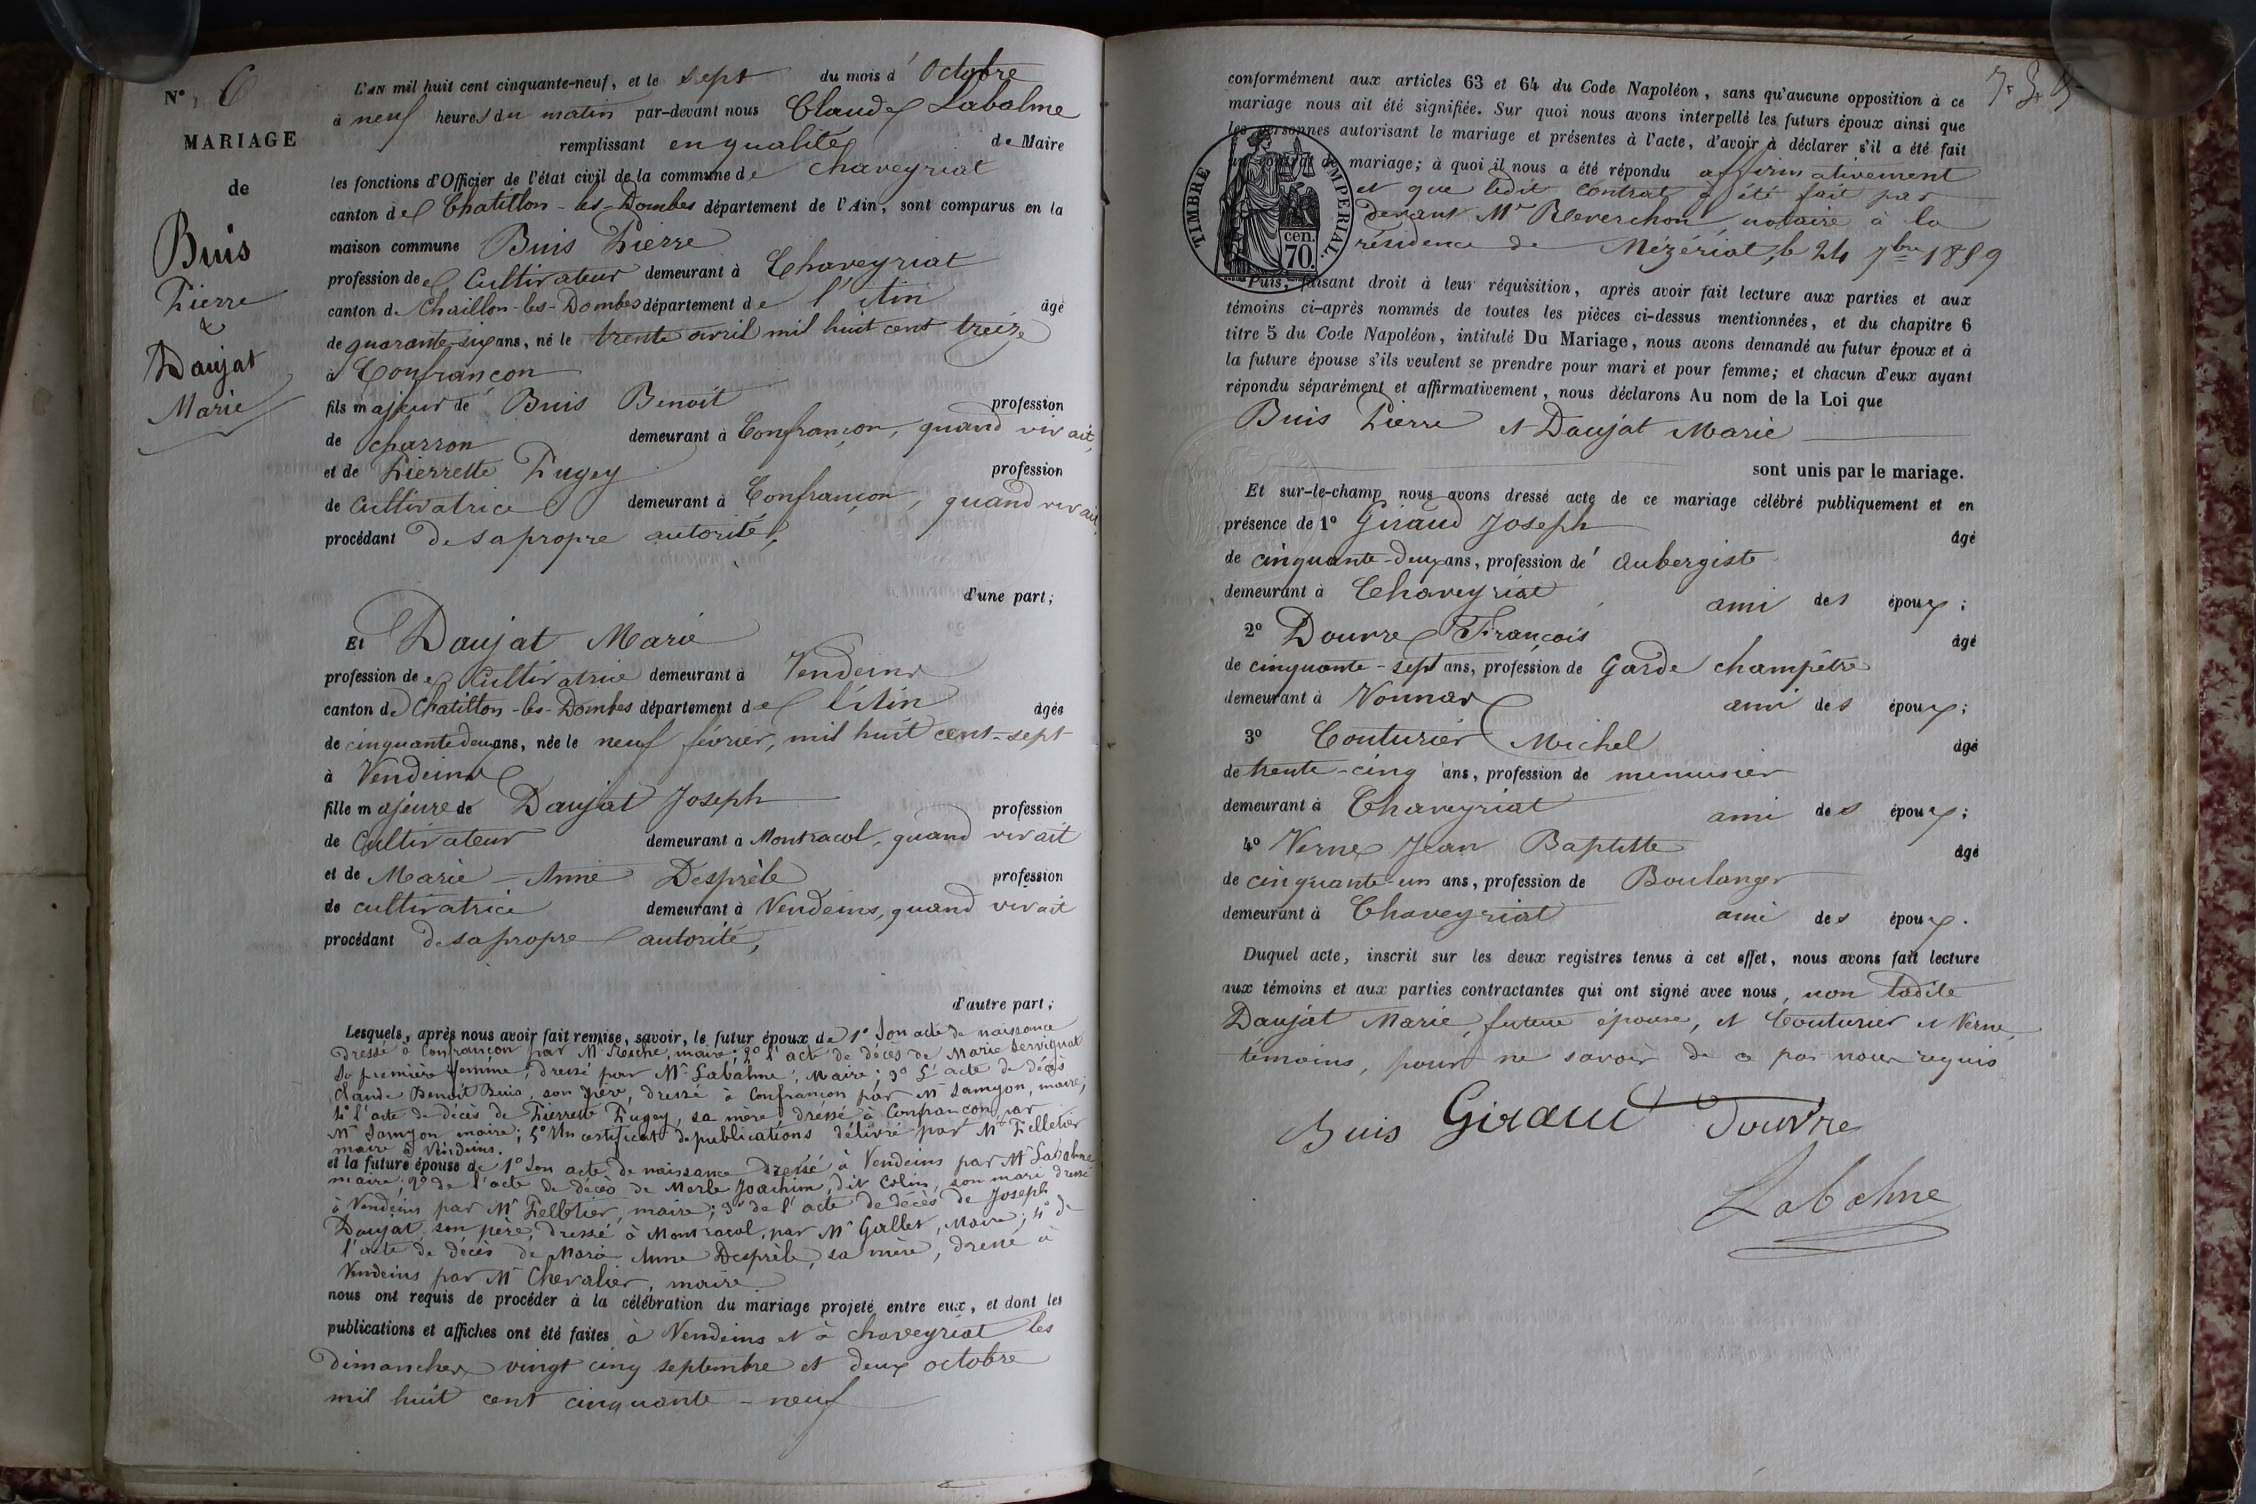 N° 6
MARIAGE
de
Buis
Pierre
&
Daujat
Marie
L'AN mil huit cent cinquante-neuf, et le sept du mois d'Octobre
à neuf heures du matin par-devant nous Claude Labalme
remplissant en qualité de Maire
les fonctions d'Officier de l'état civil de la commune de Chaveyriat
canton de Chatillon-les-Dombes département de l'Ain, sont comparus en la
maison commune Buis Pierre
profession de Cultivateur demeurant à Chaveyriat
canton de Chaillon-les-Dombes département de l'Ain âgé
de quarante-six ans, né le trente avril mil huit cent treize
à Confrançon
fils majeur de Buis Benoit profession
de charron demeurant à Confrançon, quand vivait,
et de Pierrette Pugey profession
de Cultivatrice demeurant à Confrançon, quand vivait
procédant de sa propre autorité,
d'une part;
Et Daujat Marie
profession de Cultivatrice demeurant à Vendeins
canton de Chatillon-les-Dombes département de l'Ain âgée
de cinquante deux ans, née le neuf février, mil huit cent-sept
à Vendeins
fille majeure de Daujat Joseph profession
de Cultivateur demeurant à Montracol, quand vivait
et de Marie-Anne Desprèle profession
de cultivatrice demeurant à Vendeins, quand vivait
procédant de sa propre autorité,
d'autre part;
Lesquels, après nous avoir fait remise, savoir, le futur époux de 1° Son acte de naissance
dressé à Confrançon par Mr maire; 2° l'acte de décès de Marie Servignat
sa première femme, dressé par Mr Labalme, Maire; 3° l'acte de décès
Claude Benoit Buis, son père, dressé à Confrançon par Mr Samyon, maire;
4° l'acte de décès de Pierrette Pugey, sa mère dressé à Confrançon par
Mr Samyon maire; 5° Un certificat de publications délivré par Mr Pelletier
maire à Vendeins.
et la future épouse de 1° Son acte de naissance dressé à Vendeins par Mr Labalme
maire; 2° de l'acte de décès de Merle Joachim, dit Colin, son mari dressé
à Vendeins par Mr Pelletier, maire; 3° de l'acte de décès de Joseph
Daujat, son père, dressé à Montracol, par Mr Gallet, Maire; 4° de
l'acte de décès de Marie Anne Desprèle, sa mère, dressé à
Vendeins par Mr Chevalier, maire
nous ont requis de procéder à la célébration du mariage projeté entre eux, et dont les
publications et affiches ont été faites à Vendeins et à Chaveyriat les
Dimanches vingt cinq septembre et deux octobre
mil huit cent cinquante-neuf
conformément aux articles 63 et 64 du Code Napoléon, sans qu'aucune opposition à ce
mariage nous ait été signifiée. Sur quoi nous avons interpellé les futurs époux ainsi que
les personnes autorisant le mariage et présentes à l'acte, d'avoir à déclarer s'il a été fait
un contrat de mariage; à quoi il nous a été répondu affirmativement
et que ledit contrat a été fait par
devant Me Reverchon notaire à la
résidence de Mézériat, le 24 7bre 1859
TIMBRE IMPERIAL.
cen.
70.
Puis, faisant droit à leur réquisition, après avoir fait lecture aux parties et aux
témoins ci-après nommés de toutes les pièces ci-dessus mentionnées, et du chapitre 6
titre 5 du Code Napoléon, intitulé Du Mariage, nous avons demandé au futur époux et à
la future épouse s'ils veulent se prendre pour mari et pour femme; et chacun d'eux ayant
répondu séparément et affirmativement, nous déclarons Au nom de la Loi que
Buis Pierre et Daujat Marie
sont unis par le mariage.
Et sur-le-champ nous avons dressé acte de ce mariage célébré publiquement et en
présence de 1° Giraud Joseph âgé
de cinquante-deux ans, profession de aubergiste
demeurant à Chaveyriat ami des époux;
2° Douvre François âgé
de cinquante-sept ans, profession de Garde champêtre
demeurant à Vonnas ami des époux;
3° Couturier Michel âgé
de trente-cinq ans, profession de menuisier
demeurant à Chaveyriat ami des époux;
4° Verne Jean Baptiste âgé
de cinquante-un ans, profession de Boulanger
demeurant à Chaveyriat ami des époux.
Duquel acte, inscrit sur les deux registres tenus à cet effet, nous avons fait lecture
aux témoins et aux parties contractantes qui ont signé avec nous, non ladite
Daujat Marie, future épouse, et Couturier et Verne,
témoins, pour ne savoir de ce par nous requis
Buis Giraud Douvre
Labalme